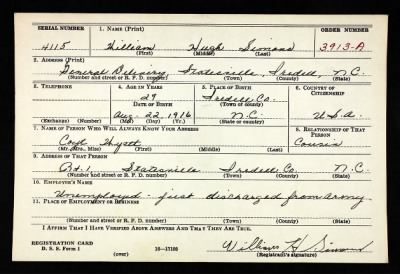 SERIAL NUMBER 1. NAME (Print) ORDER NUMBER
4115 William Hugh Simond 3913-A
(First) (Middle) (Last)
2. ADDRESS (Print)
General Delivery Statesville, Iredell, N.C.
(Number and street or R. F. D. number) (Town) (County) (State)
3. TELEPHONE 4. AGE IN YEARS 5. PLACE OF BIRTH 6. COUNTRY OF CITIZENSHIP
29 Iredell Co.
DATE OF BIRTH (Town or county)
Aug. 22, 1916 N.C. U.S.A.
(Exchange) (Number) (Mo.) (Day) (Yr.) (State or country)
7. NAME OF PERSON WHO WILL ALWAYS KNOW YOUR ADDRESS 8. RELATIONSHIP OF THAT PERSON
Hyatt Cousin
(Mr., Mrs., Miss) (First) (Middle) (Last)
9. ADDRESS OF THAT PERSON
Rt. 1 Statesville Iredell Co. N.C.
(Number and street or R. F. D. number) (Town) (County) (State)
10. EMPLOYER'S NAME
Unemployed - just discharged from army
11. PLACE OF EMPLOYMENT OR BUSINESS
(Number and street or R. F. D. number) (Town) (County) (State)
I AFFIRM THAT I HAVE VERIFIED ABOVE ANSWERS AND THAT THEY ARE TRUE.
REGISTRATION CARD
D. S. S. Form 1 16-17105 William H Simond
(over) (Registrant's signature)